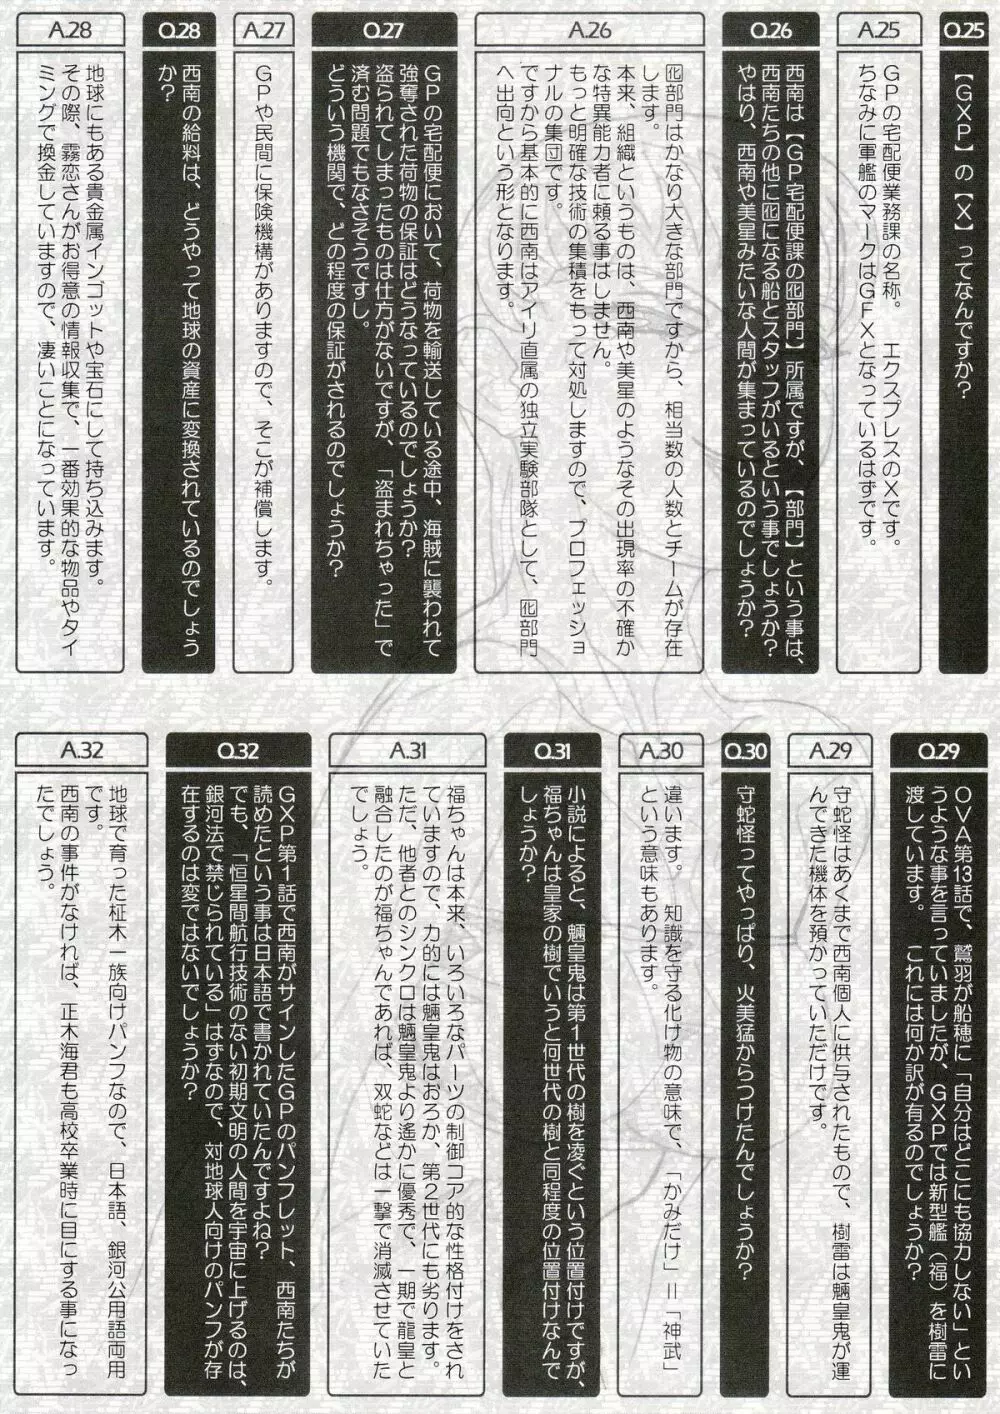 Q.25
【GXP】の【X】ってなんですか?
A.25
GPの宅配便業務課の名称。　エクスプレスのXです。
ちなみに軍艦のマークはGFXとなっているはずです。
Q.26
西南は【GP宅配便課の囮部門】所属ですが、【部門】という事は、
西南たちの他に囮になる船とスタッフがいるという事でしょうか?
やはり、西南や美星みたいな人間が集まっているのでしょうか?
A.26
囮部門はかなり大きな部門ですから、相当数の人数とチームが存在
します。
本来、組織というものは、西南や美星のようなその出現率の不確か
な特異能力者に頼る事はしません。
もっと明確な技術の集積をもって対処しますので、プロフェッショ
ナルの集団です。
ですから基本的に西南はアイリ直属の独立実験部隊として、囮部門
へ出向という形となります。
Q.27
GPの宅配便において、荷物を輸送している途中、海賊に襲われて
強奪された荷物の保証はどうなっているのでしょうか?
盗られてしまったものは仕方がないですが、「盗まれちゃった」で
済む問題でもなさそうですし。
どういう機関で、どの程度の保証がされるのでしょうか?
A.27
GPや民間に保険機構がありますので、そこが補償します。
Q.28
西南の給料は、どうやって地球の資産に変換されているのでしょう
か?
A.28
地球にもある貴金属インゴットや宝石にして持ち込みます。
その際、霧恋さんがお得意の情報収集で、一番効果的な物品やタイ
ミングで換金していますので、凄いことになっています。
Q.29
OVA第13話で、鷲羽が船穂に「自分はどこにも協力しない」とい
うような事を言っていましたが、GXPでは新型艦(福)を樹雷に
渡しています。　これには何か訳が有るのでしょうか?
A.29
守蛇怪はあくまで西南個人に供与されたもので、樹雷は魎皇鬼が運
んできた機体を預かっていただけです。
Q.30
守蛇怪ってやっぱり、火美猛からつけたんでしょうか?
A.30
違います。　知識を守る化け物の意味で、「かみだけ」＝「神武」
という意味もあります。
Q.31
小説によると、魎皇鬼は第1世代の樹を凌ぐという位置付けですが、
福ちゃんは皇家の樹でいうと何世代の樹と同程度の位置付けなんで
しょうか?
A.31
福ちゃんは本来、いろいろなパーツの制御コア的な性格付けをされ
ていますので、力的には魎皇鬼はおろか、第2世代にも劣ります。
ただ、他者とのシンクロは魎皇鬼より遙かに優秀で、一期で龍皇と
融合したのが福ちゃんであれば、双蛇などは一撃で消滅させていた
でしょう。
Q.32
GXP第1話で西南がサインしたGPのパンフレット、西南たちが
読めたという事は日本語で書かれていたんですよね?
でも、「恒星間航行技術のない初期文明の人間を宇宙に上げるのは、
銀河法で禁じられている」はずなので、対地球人向けのパンフが存
在するのは変ではないでしょうか?
A.32
地球で育った柾木一族向けパンフなので、日本語、銀河公用語両用
です。
西南の事件がなければ、正木海君も高校卒業時に目にする事になっ
たでしょう。